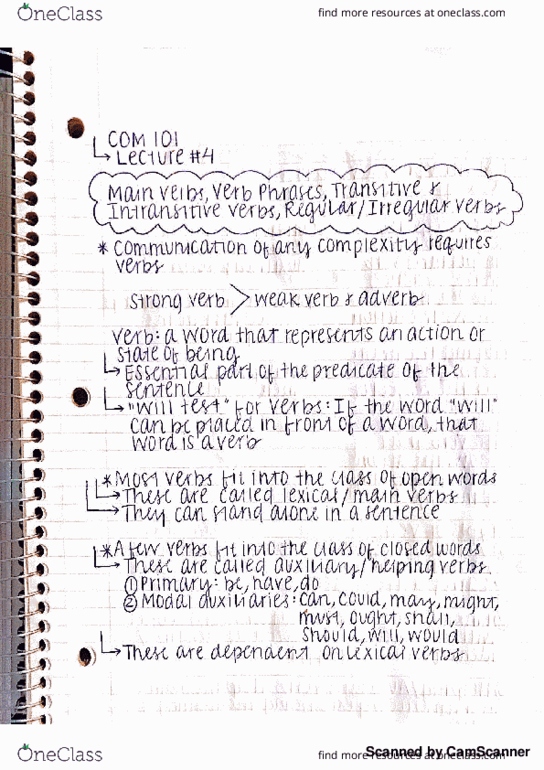 OneClass
find more resources at oneclass.com
COM 101
Lecture #4
Main verbs, Verb Phrases, Transitive &
Intransitive verbs, Regular/Irregular verbs
* Communication of any complexity requires
verbs
Strong verb > weak verb & adverb
Verb: a word that represents an action or
state of being
→ Essential part of the predicate of the
sentence
→ "Will test" for verbs: If the word "will"
can be placed in front of a word, that
word is a verb
* Most verbs fit into the class of open words
→ These are called lexical/main verbs
→ They can stand alone in a sentence
* A few verbs fit into the class of closed words
→ These are called auxiliary/helping verbs
① Primary: be, have, do
② Modal auxiliaries: can, could, may, might,
must, ought, shall,
should, will, would
→ These are dependent on lexical verbs
OneClass
find more resources at oneclass.com
Scanned by CamScanner